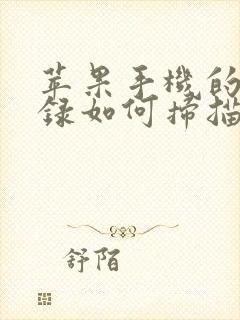 苹果手機的
録如何掃描
舒陌